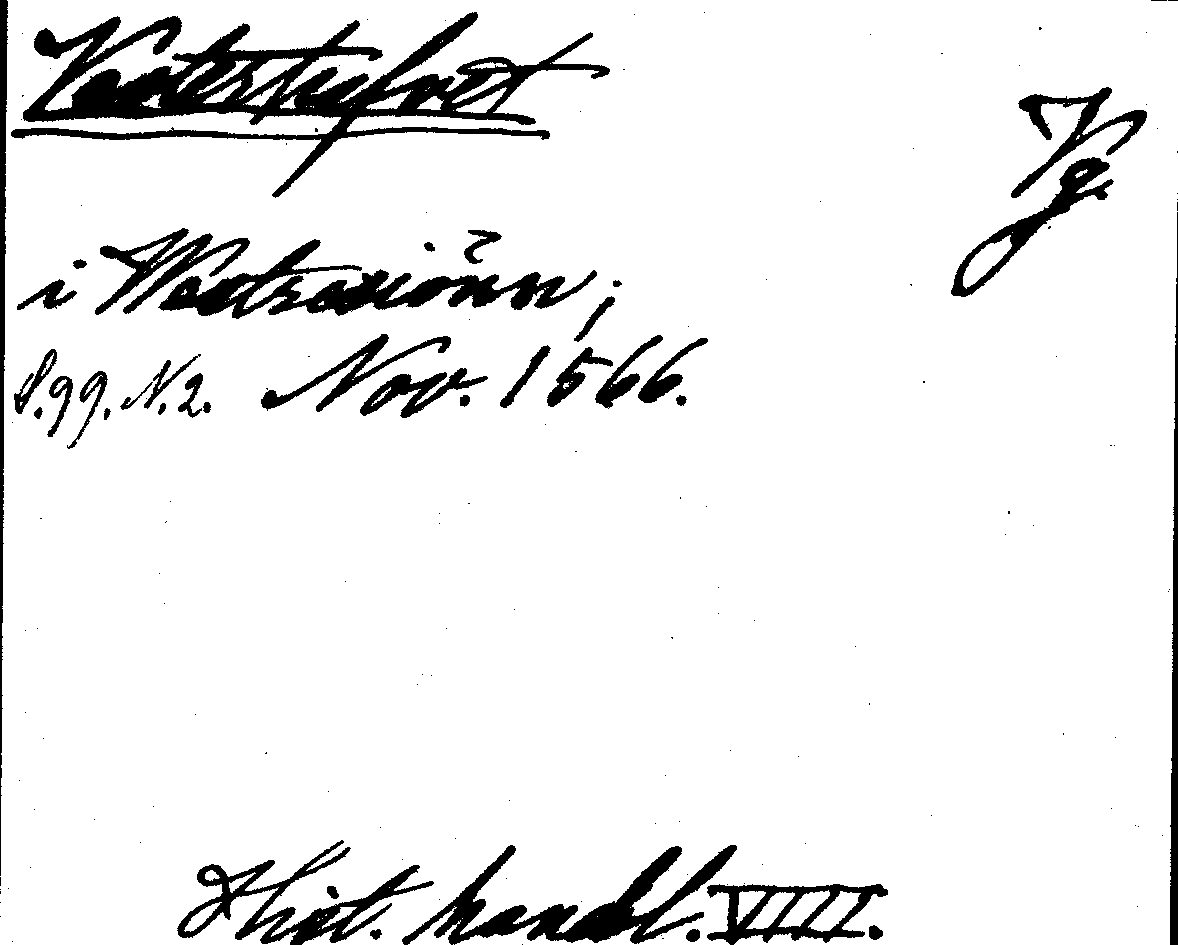 Vg.
i Wætrasiönn;
S. 99. N. 2. Nov. 1566.
Hist. handl. VIII.